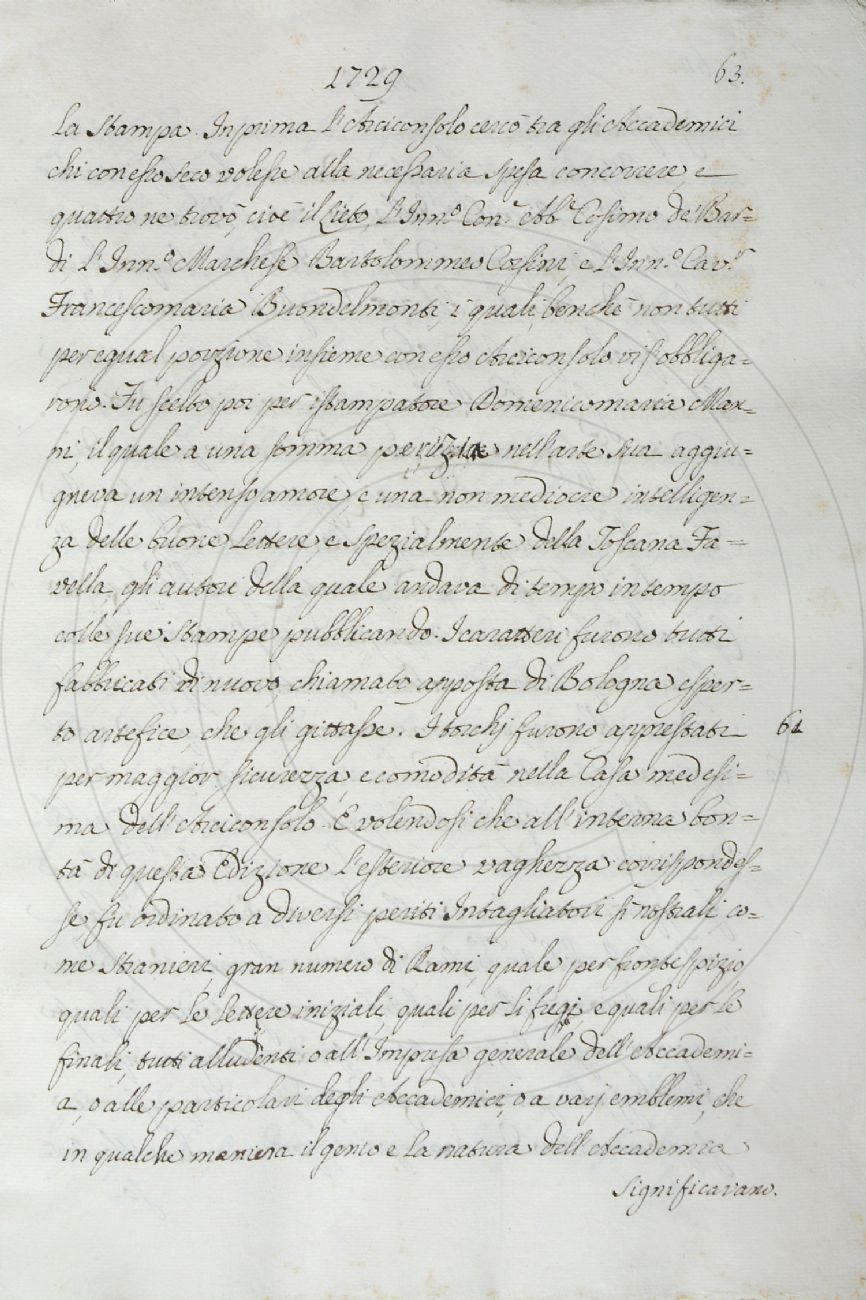 1729
63.
La Stampa. In prima L'Arciconsolo cercò tra gli Accademici
chi con esso seco volesse alla necessaria spesa concorrere, e
quattro ne trovò, cioè il Lieto, L'Inn.º Con.e Abb.e Cosimo de' Bar=
di L'Inn.º Marchese Bartolommeo Corsini, e L'Inn.º Cav.r
Francescomaria Buondelmonti, i quali, benchè non tutti
per egual porzione insieme con esso Arciconsolo vi s'obbliga=
rono. Fu scelto poi per istampatore Domenicomaria Man=
ni, il quale a una somma perizia nell'arte sua aggiu=
gneva un intenso amore, e una non mediocre intelligen=
za delle buone Lettere, e spezialmente della Toscana Fa=
vella, gli autori della quale andava di tempo in tempo
colle sue Stampe pubblicando. I caratteri furono tutti
fabbricati di nuovo, chiamato apposta di Bologna esper=
to artefice, che gli gittasse. I torchj furono apprestati
61
per maggior sicurezza, e comodità nella Casa medesi=
ma dell'Arciconsolo. E volendosi che all'interna bon=
tà di questa Edizione L'esteriore vaghezza corrispondes=
se, fu ordinato a diversi periti Intagliatori sì nostrali, co=
me Stranieri, gran numero di Rami, quale per frontespizio,
quali per Le Lettere iniziali, quali per Li fregi, e quali per Le
finali, tutti alludenti o all'Impresa generale dell'Accademi=
a, o alle particolari degli Accademici, o a varj emblemi, che
in qualche maniera il genio e La natura dell'Accademia
significavano.